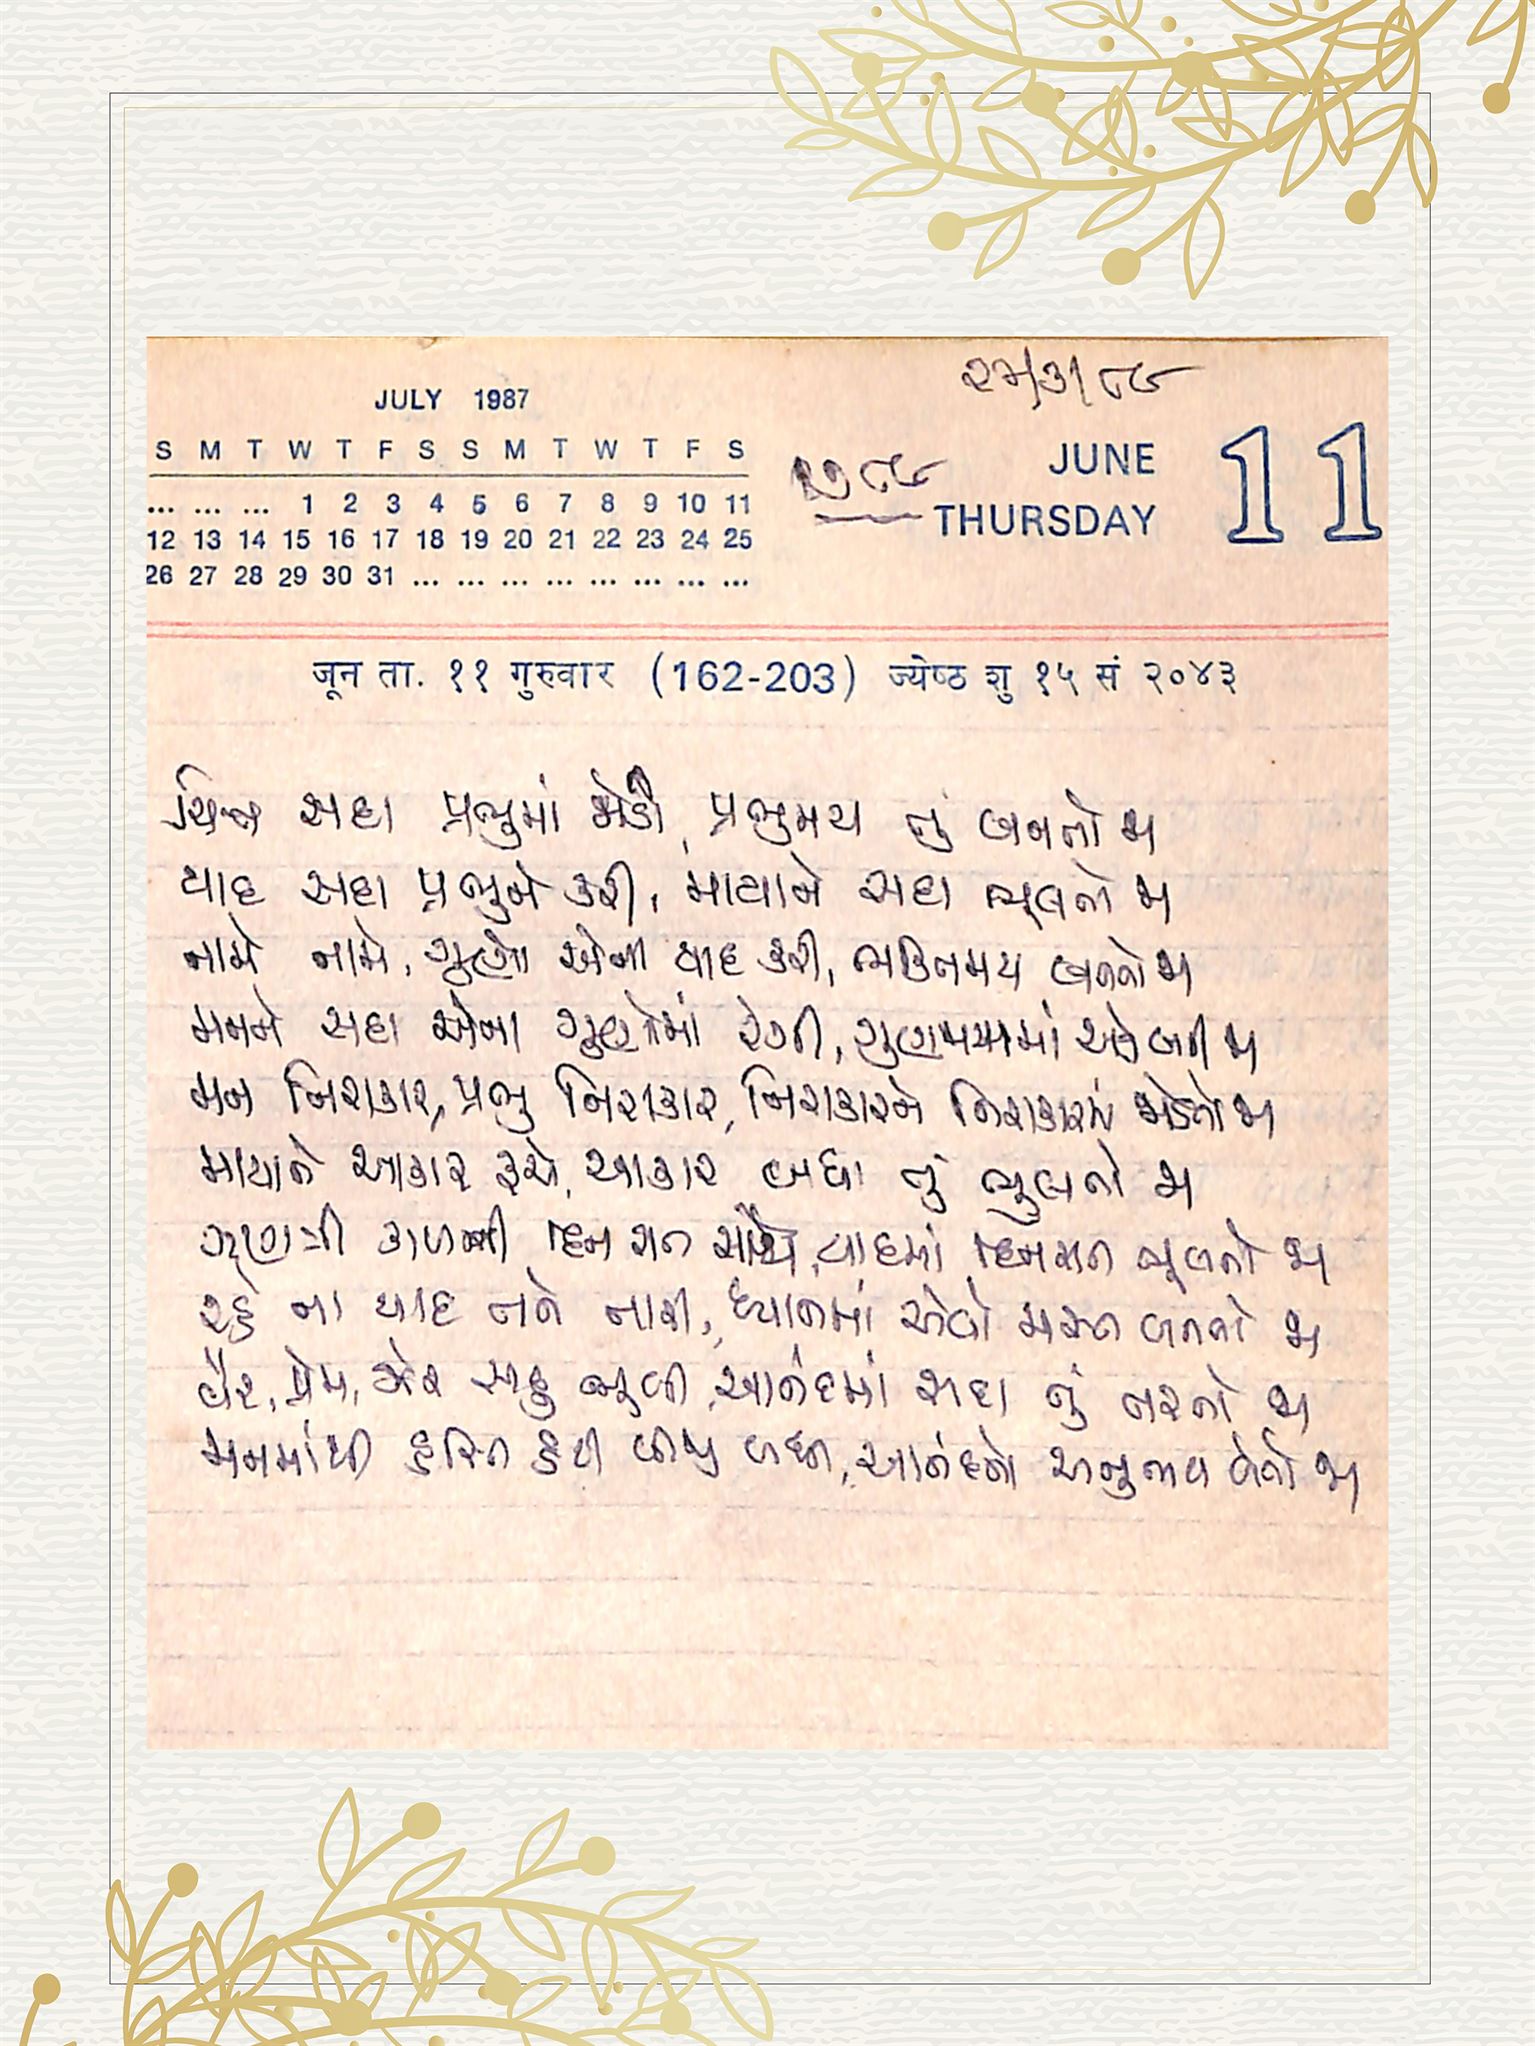 ૨૫/૩/૮૯
JULY 1987
S M T W T F S S M T W T F S
... ... ... 1 2 3 4 5 6 7 8 9 10 11
12 13 14 15 16 17 18 19 20 21 22 23 24 25
26 27 28 29 30 31 ... ... ... ... ... ... ... ...
JUNE 11
THURSDAY
जून ता. ११ गुरुवार (162-203) ज्येष्ठ शु १५ सं २०४३
ચિત્ત સદા પ્રભુમાં જોડી, પ્રભુમય તું બનતો જા
યાદ સદા પ્રભુને કરી, માયાને સદા ભૂલતો જા
નામે નામે, ગુણો એના યાદ કરી, ભક્તિમય બનતો જા
મનને સદા એના ગુણોમાં રંગી, ગુણમયમાં બની જા
મન નિરાકાર, પ્રભુ નિરાકાર, નિરાકારને નિરાકારમાં જોડતો જા
માયાને આકાર રૂપે, આકાર બધા તું ભૂલતો જા
ગણત્રી કાળની દિન રાત યાદમાં દિનરાત ભૂલતો જા
રહે ના યાદ તને તારી, ધ્યાનમાં એવો મસ્ત બનતો જા
વૈર, પ્રેમ, ઝેર સહુ ભૂલી, આનંદમાં સદા તું તરતો જા
મનમાંથી વૃત્તિ હટી બીજી બધી, આનંદનો અનુભવ લેતો જા